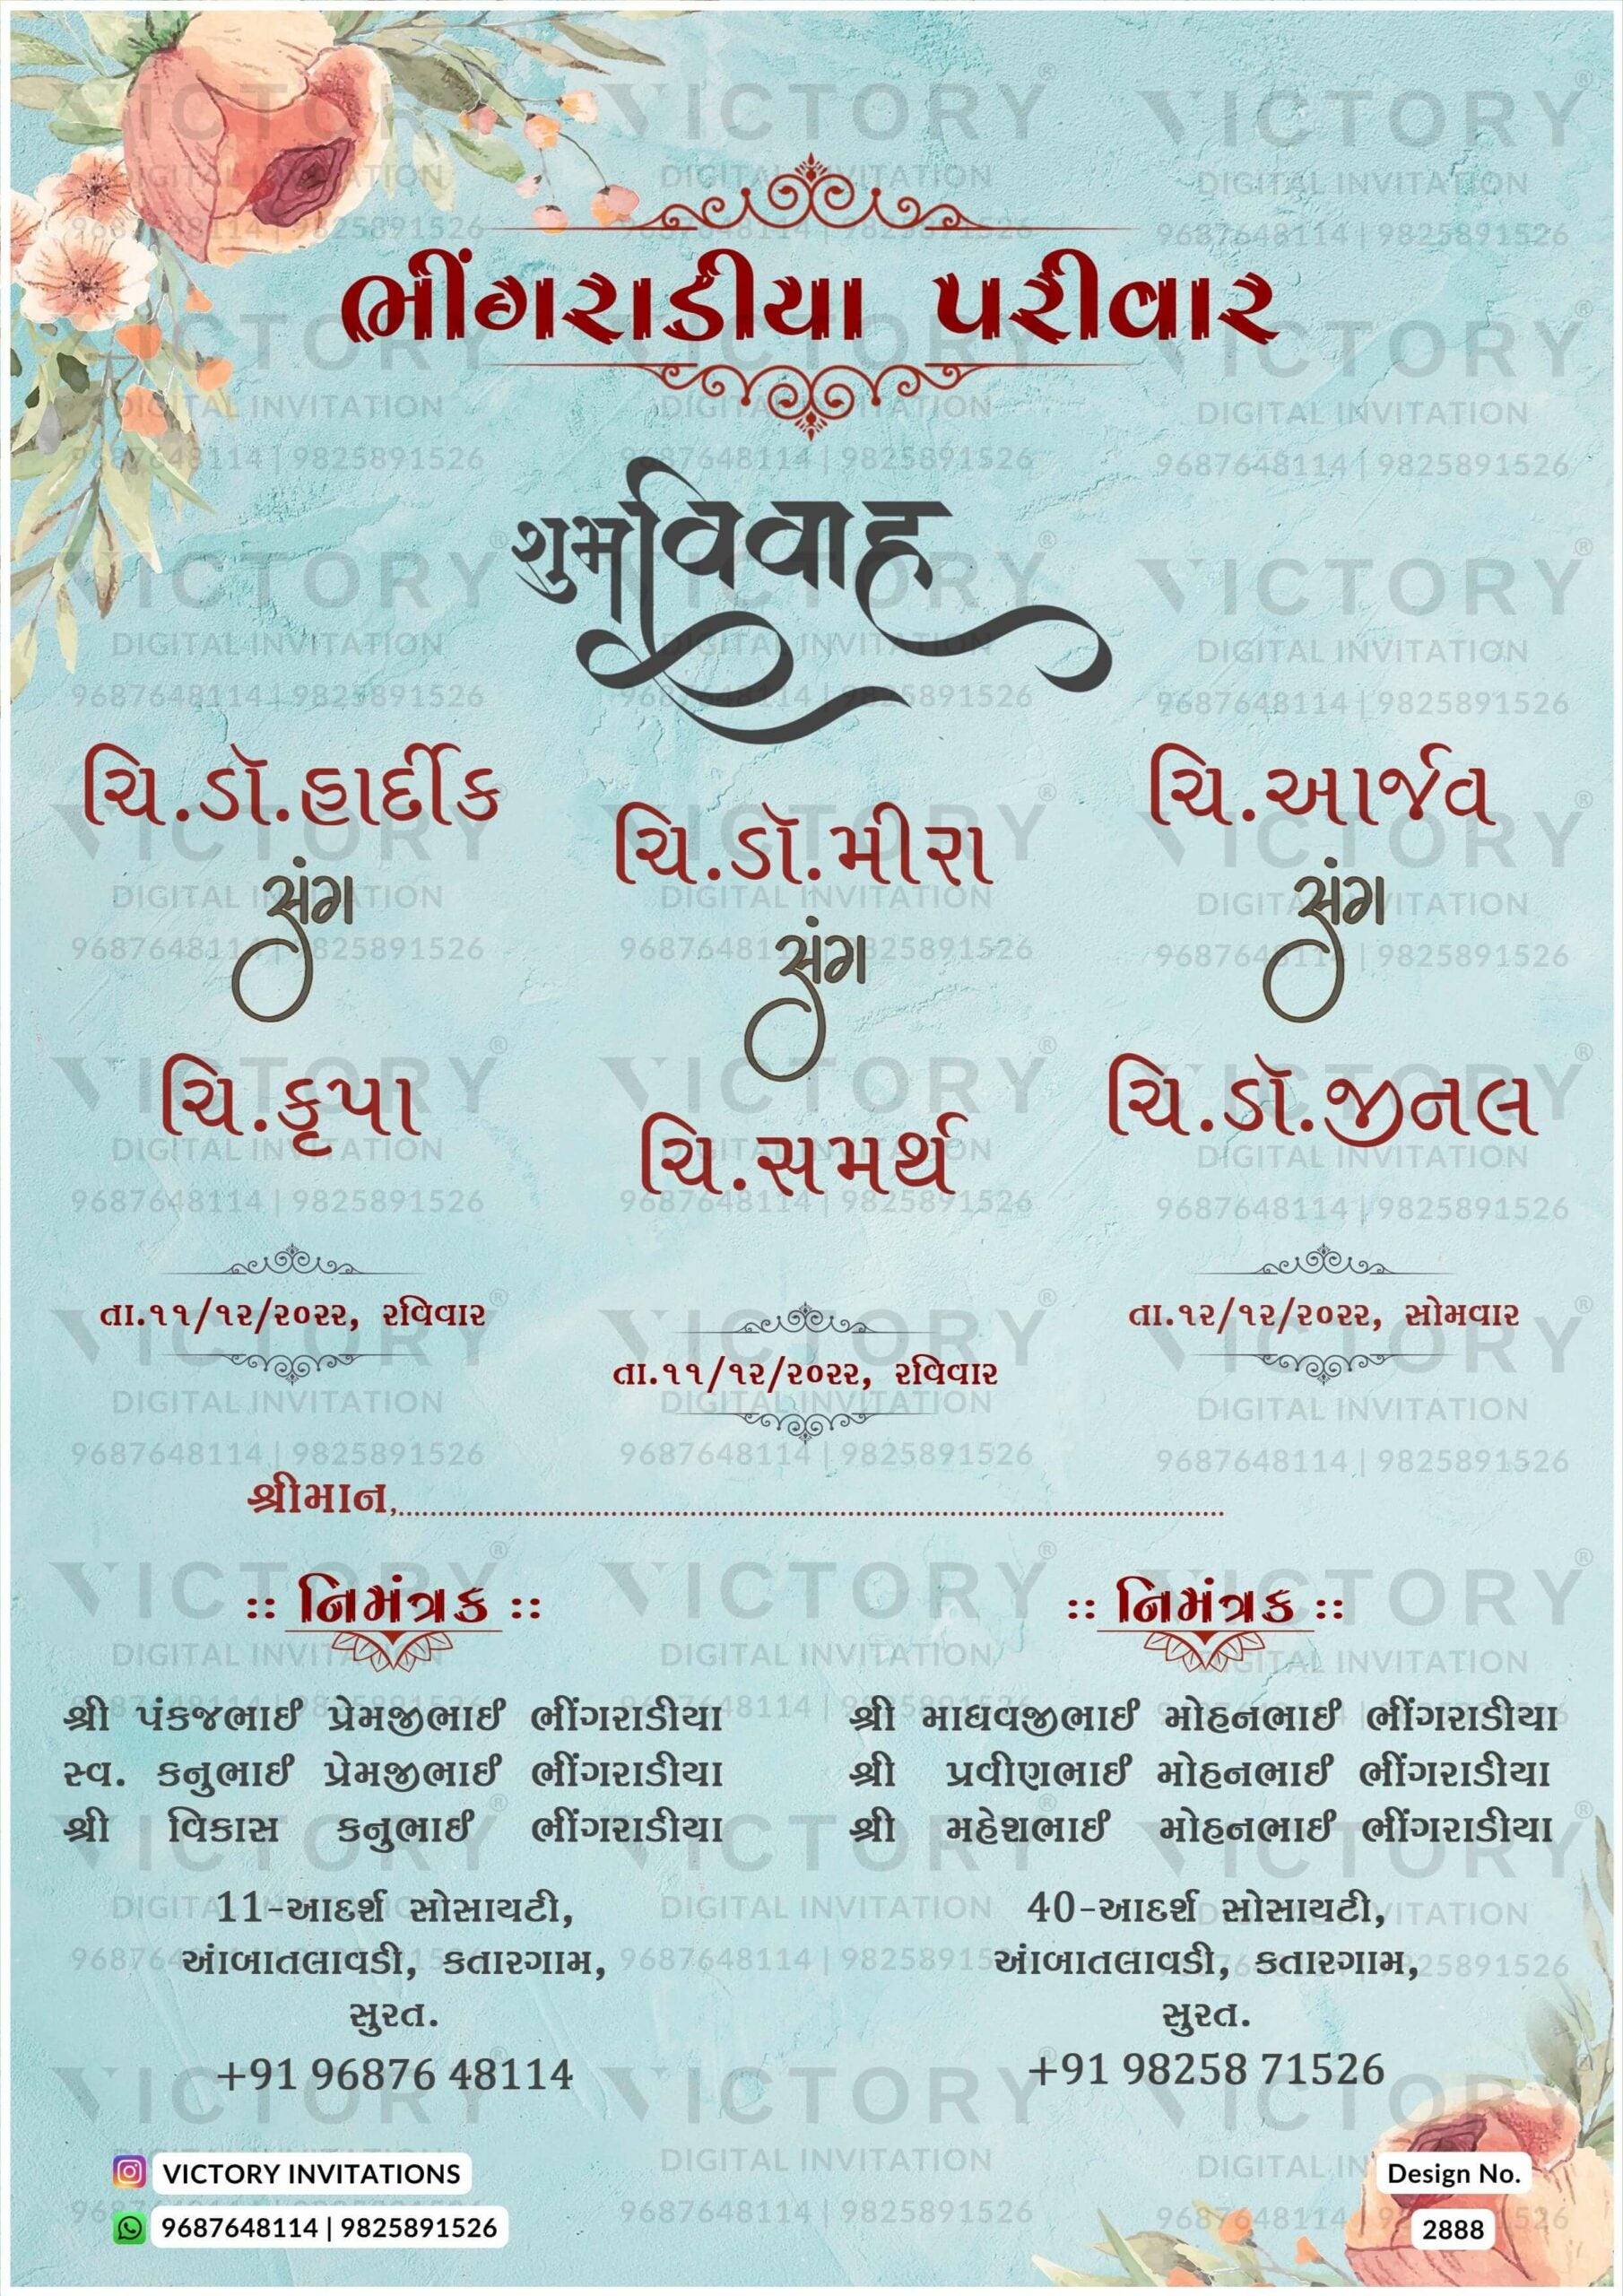 ભીંગરાડીયા પરીવાર
शुभ विवाह
ચિ.ડૉ.હાર્દીક
સંગ
ચિ.કૃપા
તા.૧૧/૧૨/૨૦૨૨, રવિવાર
ચિ.ડૉ.મીરા
સંગ
ચિ.સમર્થ
તા.૧૧/૧૨/૨૦૨૨, રવિવાર
ચિ.આર્જવ
સંગ
ચિ.ડૉ.જીનલ
તા.૧૨/૧૨/૨૦૨૨, સોમવાર
શ્રીમાન,........................................
:: નિમંત્રક ::
શ્રી પંકજભાઈ પ્રેમજીભાઈ ભીંગરાડીયા
સ્વ. કનુભાઈ પ્રેમજીભાઈ ભીંગરાડીયા
શ્રી વિકાસ કનુભાઈ ભીંગરાડીયા
11-આદર્શ સોસાયટી,
આંબાતલાવડી, કતારગામ,
સુરત.
+91 96876 48114
:: નિમંત્રક ::
શ્રી માધવજીભાઈ મોહનભાઈ ભીંગરાડીયા
શ્રી પ્રવીણભાઈ મોહનભાઈ ભીંગરાડીયા
શ્રી મહેશભાઈ મોહનભાઈ ભીંગરાડીયા
40-આદર્શ સોસાયટી,
આંબાતલાવડી, કતારગામ,
સુરત.
+91 98258 71526
VICTORY INVITATIONS
9687648114 | 9825891526
Design No.
2888
VICTORY®
DIGITAL INVITATION
9687648114 | 9825891526